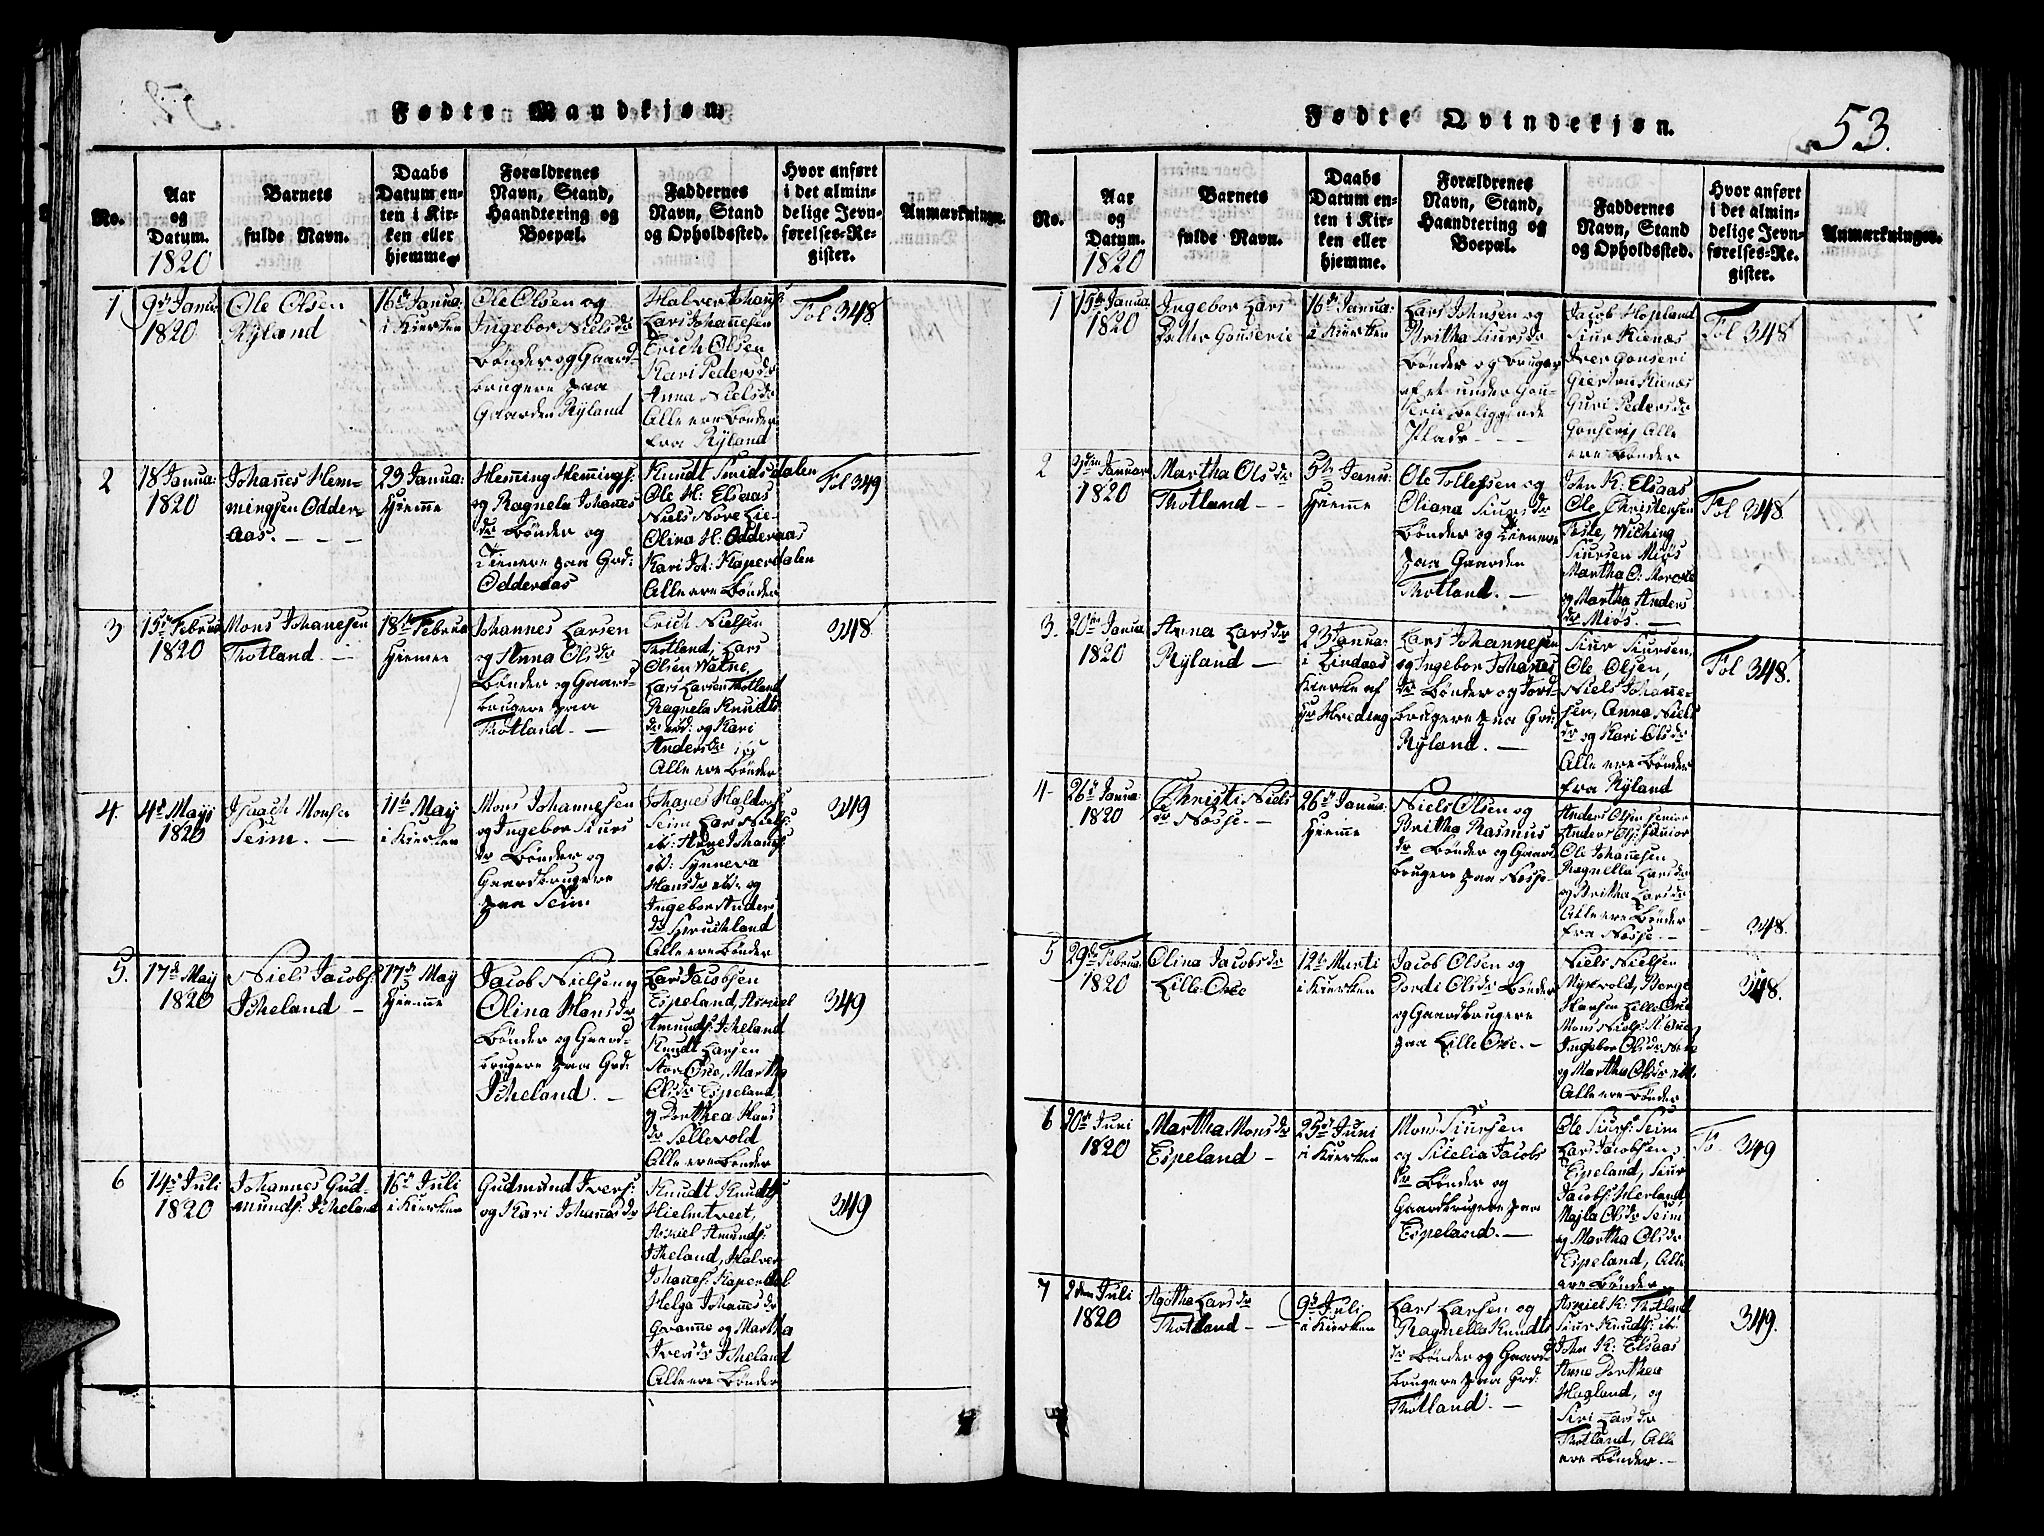 Fødte Mandkjøn.
No.
Aar
og
Datum.
1820
Barnets
fulde Navn.
Daabs
Datum en-
ten i Kir-
ken eller
hjemme.
Forældrenes
Navn, Stand,
Haandtering og
Boepæl.
Faddernes
Navn, Stand
og Opholdssted.
Hvor anført
i det almin-
delige Jevn-
førelses-Re-
gister.
Anmærkninger.
1
9de Janua
1820
Ole Olsen
Ryland
16de Janua:
i Kierken
Ole Olsen og
Ingebor Nielsdr
Bønder og Gaard-
brugere paa
Gaarden Ryland
Halver Johans
Lars Johannesen
Erich Olsen
Kari Pedersdr
Anna Nielsdr
Alle ere Bønder
fra Ryland
Fol 348
2
18 Janua:
1820
Johannes Hem-
mingsen Odder-
aas.
23 Janua:
Hiemme
Hemming Hemmings:
og Ragnela Johannes
dr Bønder og
Tienere paa Grd:
Odderaas
Knudt Smidsdalen
Ole H: Elsaas
Niels Nore Lie
Olina H: Odderaas
Kari Joh: Kaperdalen
Alle ere Bønder
Fol 349
3
15de Februa
1820
Mons Johanesen
Thotland.
18de Februa
Hiemme
Johannes Larsen
og Anna Olsdr
Bønder og Gaard-
brugere paa
Thotland.
Erich Nielsen
Thotland, Lars
Olsen Watne,
Lars Larsen Thotland
Ragnela Knudts
dr ibid: og Kari
Andersdr
Alle ere Bønder
348
4.
4de Mayi
1820
Isaach Monsen
Seim.
11te May
i Kierken
Mons Johannesen
og Ingebor Siurs
dr Bønder og
Gaardbrugere
paa Seim
Johanes Haldors:
Seim Lars Niels:
ib: Anne Johans
ib: Synneva
Hansdr ibd: og
Ingebor Anders
dr Spruchland
Alle ere Bønder
349
5.
17de May
1820
Niels Jacobs:
Icheland
17de May
Hiemme
Jacob Nielsen og
Olina Monsdr
Bønder og Gaard-
brugere paa Grd:
Icheland.
Lars Jacobsen
Espeland, Asmiel
Amunds: Icheland
Knudt Larsen
Stor Oxe, Martha
Olsdr Espeland,
og Dorthea Hans
dr Sællevold
Alle ere Bønder
349
6
14de Juli
1820
Johannes Gud-
munds: Icheland
16de Juli
i Kierken
Gudmund Ivers:
og Kari Johannesdr
Knudt Knudts
Hielmtveit,
Asmiel Amunds:
Icheland, Halver
Johans: Kaperdal
Helga Johannesdr
og Martha
Iversdr Icheland
Alle ere Bønder
349
Fødte Qvindekjøn.
53.
No.
Aar
og
Datum.
1820
Barnets
fulde Navn.
Daabs
Datum en-
ten i Kir-
ken eller
hjemme.
Forældrenes
Navn, Stand,
Haandtering og
Boepæl.
Faddernes
Navn, Stand
og Opholdssted.
Hvor anført
i det almin-
delige Jevn-
førelses-Re-
gister.
Anmærkninger.
1
15de Janua
1820
Ingebor Lars
Datter Gonserie
16de Janua:
i Kierken
Lars Johnsen og
Britha Siursdr
Bønder og bruger
af et under Gon-
serie beliggende
Plads
Jacob Hopland
Siur Kienæs
Iver Gonseri
Giertru Kienæs
Guri Pedersdr
Gonseri, Alle
ere Bønder
Fol 348
2
3die Januar
1820
Martha Olsdr
Thotland
5te Janu:
Hiemme
Ole Tollefsen og
Oliana Siursdr
Bønder og tienere
paa Gaarden
Thotland.
John K: Elsaas
Ole Christensen
Feste, Wiching
Siursen Miøs
Martha O:
og Martha Anders
dr Miøs.
Fol 348
3.
20de Janua
1820
Anna Larsdr
Ryland
23 Janua:
i Lindaas
Kierke af
Hr Heiding
Lars Johannesen
og Ingebor Johanes
dr Bønder og Jord-
brugere paa Grd:
Ryland.
Siur Siursen,
Ole Olsen,
Niels Johanne-
sen, Anna Niels
dr og Kari Olsdr
Alle ere Bønder
fra Ryland
Fol 348.
4
26de Janua:
1820
Christi Niels
dr Nosse.
26de Janua:
Hiemme
Niels Olsen og
Britha Rasmus
dr Bønder og Gaard
brugere paa Nosse
Anders Olsen senior
Anders Ols: Junior
Ole Johannesen
Ragnella Larsdr
og Britha Larsdr
Alle ere Bønder
fra Nosse.
348.
5
29de Februa
1820
Olina Jacobsdr
Lille Oxe
12te Marti
i Kierken
Jacob Olsen og
Jordi Olsdr Bønder
og Gaardbrugere
paa Lille Oxe.
Niels Nielsen
Myxvold, Berge
Hansen Lille Oxe
Mons Niels: St Oxe
Ingebor Olsdr
og Martha Olsdr ibd.
Alle ere Bønder
348.
6
20de Juni
1820
Martha Monsdr
Espeland
25de Juni
i Kierken
Mons Siursen
og Sicelia Jacobs
dr Bønder og
Gaardbrugere paa
Espeland.
Ole Siurs: Seim
Lars Jacobsen
Espeland, Siur
Jacobs: Herland
Majla Olsdr Seim
og Martha Olsdr
Espeland, Alle
ere Bønder
Fo 349
7
2den Juli
1820
Agotha Larsdr
Thotland
9de Juli
i Kierken
Lars Larsen og
Ragnella Knudts
dr Bønder og Gaard
brugere paa Grd:
Thotland.
Asmiel K: Thotland
Siur Knudts: ib:
John K: Elsaas
Anne Dorthea
Hagland, og
Siri Larsdr
Thotland, Alle
ere Bønder.
349.